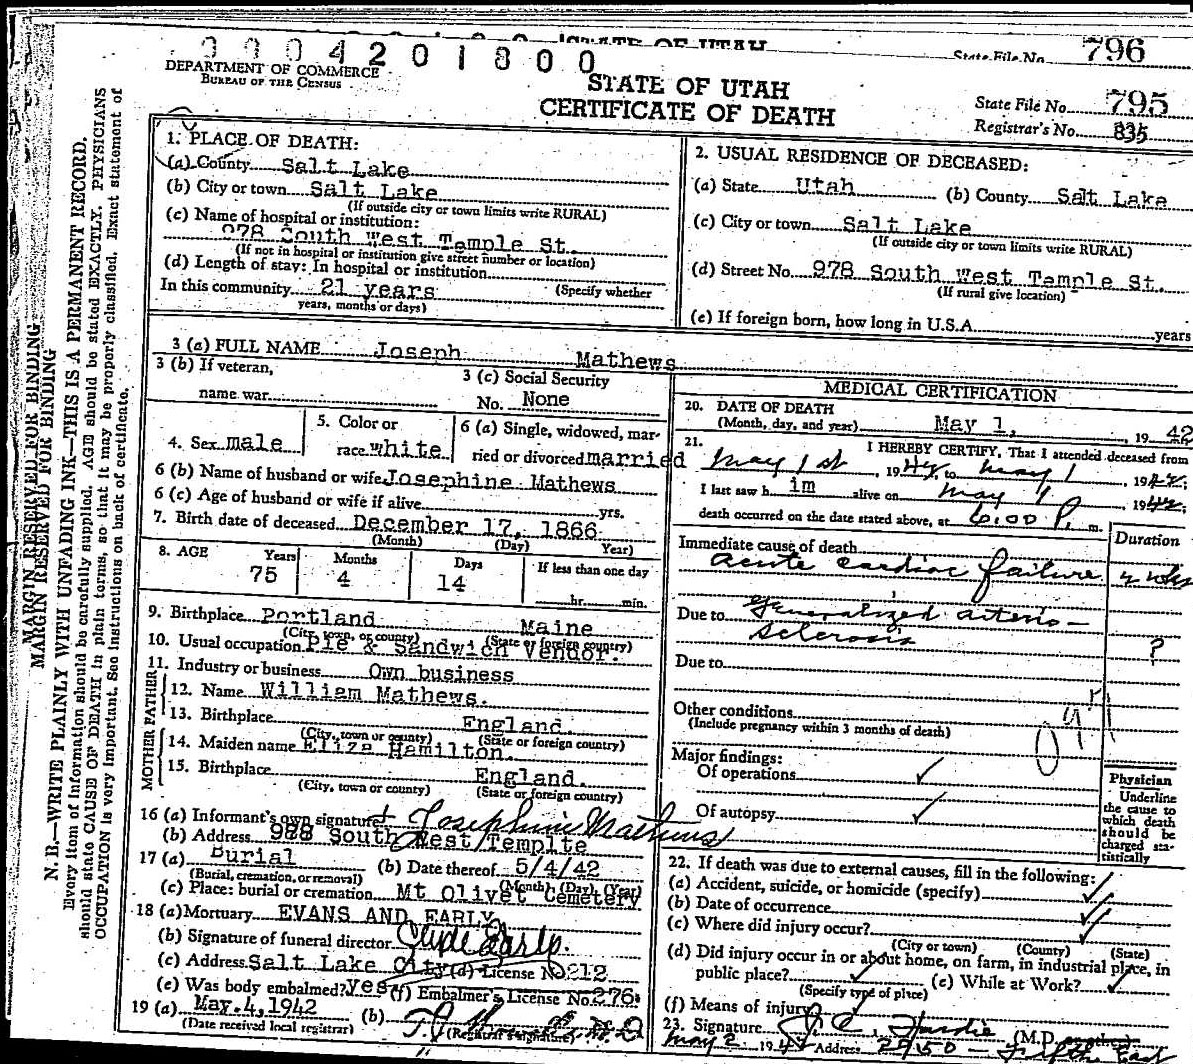 STATE OF UTAH
State File No. 796
0004201800
DEPARTMENT OF COMMERCE
BUREAU OF THE CENSUS
STATE OF UTAH
CERTIFICATE OF DEATH
State File No. 795
Registrar's No. 835
1. PLACE OF DEATH:
(a) County Salt Lake
(b) City or town Salt Lake
(If outside city or town limits write RURAL)
(c) Name of hospital or institution:
978 South West Temple St.
(If not in hospital or institution give street number or location)
(d) Length of stay: In hospital or institution
(Specify whether
In this community 21 years
years, months or days)
2. USUAL RESIDENCE OF DECEASED:
(a) State Utah (b) County Salt Lake
(c) City or town Salt Lake
(If outside city or town limits write RURAL)
(d) Street No. 978 South West Temple St.
(If rural give location)
(e) If foreign born, how long in U.S.A. years
3 (a) FULL NAME Joseph Mathews
3 (b) If veteran,
name war
3 (c) Social Security
No. None
4. Sex male
5. Color or
race white
6 (a) Single, widowed, mar-
ried or divorced married
6 (b) Name of husband or wife Josephine Mathews
6 (c) Age of husband or wife if alive yrs.
7. Birth date of deceased December 17, 1866
(Month) (Day) Year)
8. AGE Years Months Days If less than one day
75 4 14 hr. min.
9. Birthplace Portland Maine
(City, town, or county) (State or foreign country)
10. Usual occupation Pie & Sandwich Vendor.
11. Industry or business Own business
FATHER
12. Name William Mathews.
13. Birthplace England.
(City, town or county) (State or foreign country)
MOTHER
14. Maiden name Eliza Hamilton.
15. Birthplace England.
(City, town or county) (State or foreign country)
16 (a) Informant's own signature Josephine Mathews
(b) Address 988 South West Templte
17 (a) Burial (b) Date thereof 5/4/42
(Burial, cremation, or removal) (Month) (Day) (Year)
(c) Place: burial or cremation Mt Olivet Cemetery
18 (a) Mortuary EVANS AND EARLY
(b) Signature of funeral director Clyde Early.
(c) Address Salt Lake City (d) License No 212
(e) Was body embalmed? yes (f) Embalmer's License No. 276
19 (a) May.4,1942 (b)
(Date received local registrar) (Registrar's signature)
MEDICAL CERTIFICATION
20. DATE OF DEATH
(Month, day, and year) May 1, 1942
21. I HEREBY CERTIFY, That I attended deceased from
May 1st, 1942, to May 1, 1942;
I last saw him alive on May 1, 1942;
death occurred on the date stated above, at 6:00 P. m.
Immediate cause of death
Duration
acute cardiac failure
Due to generalized arterio-
sclerosis ?
Due to
Other conditions
(Include pregnancy within 3 months of death)
Major findings:
Of operations ✓
Of autopsy ✓
Physician
Underline
the cause to
which death
should be
charged sta-
tistically
22. If death was due to external causes, fill in the following:
(a) Accident, suicide, or homicide (specify) ✓
(b) Date of occurrence ✓
(c) Where did injury occur? ✓
(City or town) (County) (State)
(d) Did injury occur in or about home, on farm, in industrial place, in
public place? ✓ (e) While at Work? ✓
(Specify type of place)
(f) Means of injury
23. Signature (M.D. or other)
May 2 1942 Address
MARGIN RESERVED FOR BINDING
MARGIN RESERVED FOR BINDING
N. B.—WRITE PLAINLY WITH UNFADING INK—THIS IS A PERMANENT RECORD.
Every item of information should be carefully supplied. AGE should be stated EXACTLY. PHYSICIANS
should state CAUSE OF DEATH in plain terms, so that it may be properly classified. Exact statement of
OCCUPATION is very important. See instructions on back of certificate.